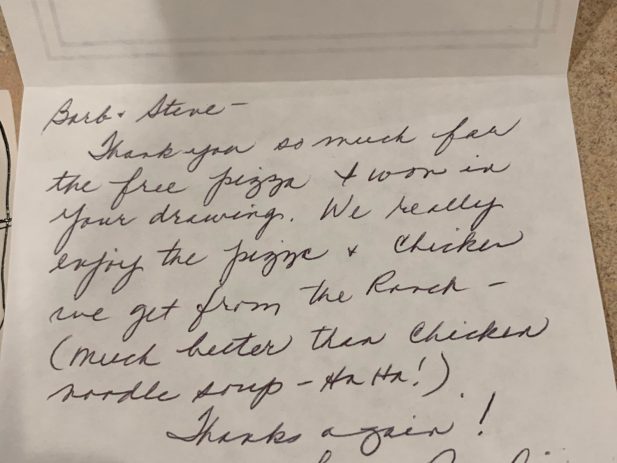 Barb & Steve -
Thank you so much for
the free pizza I won in
your drawing. We really
enjoy the pizza & chicken
we get from the Ranch -
(much better than chicken
noodle soup - Ha Ha!).
Thanks again!